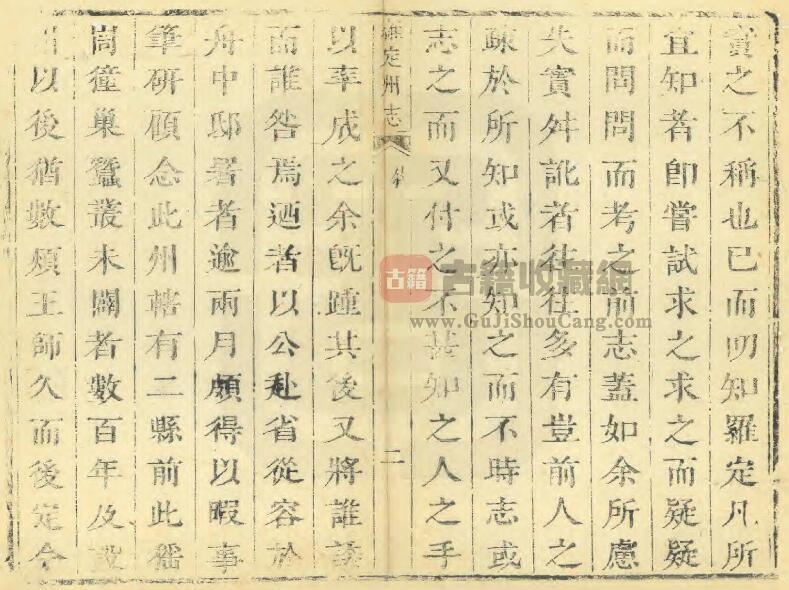 實之不稱也已而明知羅定凡所
宜知者卽嘗試求之求之而疑疑
而問問而考之前志蓋如余所慮
失實舛訛者往往多有豈前人之
疎於所知或亦知之而不時志或
志之而又付之不甚知之人之手
羅定州志
二
以率成之余旣踵其後又將誰諉
而誰咎焉迺者以公赴省從容於
舟中邸署者逾兩月頗得以暇事
筆硏顧念此州轄有二縣前此徭
峝獞巢蠶叢未闢者數百年及設
以後猶數煩王師久而後定今
古籍
古籍收藏網
www.GuJiShouCang.com